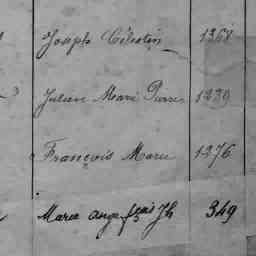 Joseph Célestin 1368
Julien Marie Pierre 1239
François Marie 1276
Marie Ange fçois Jh 349